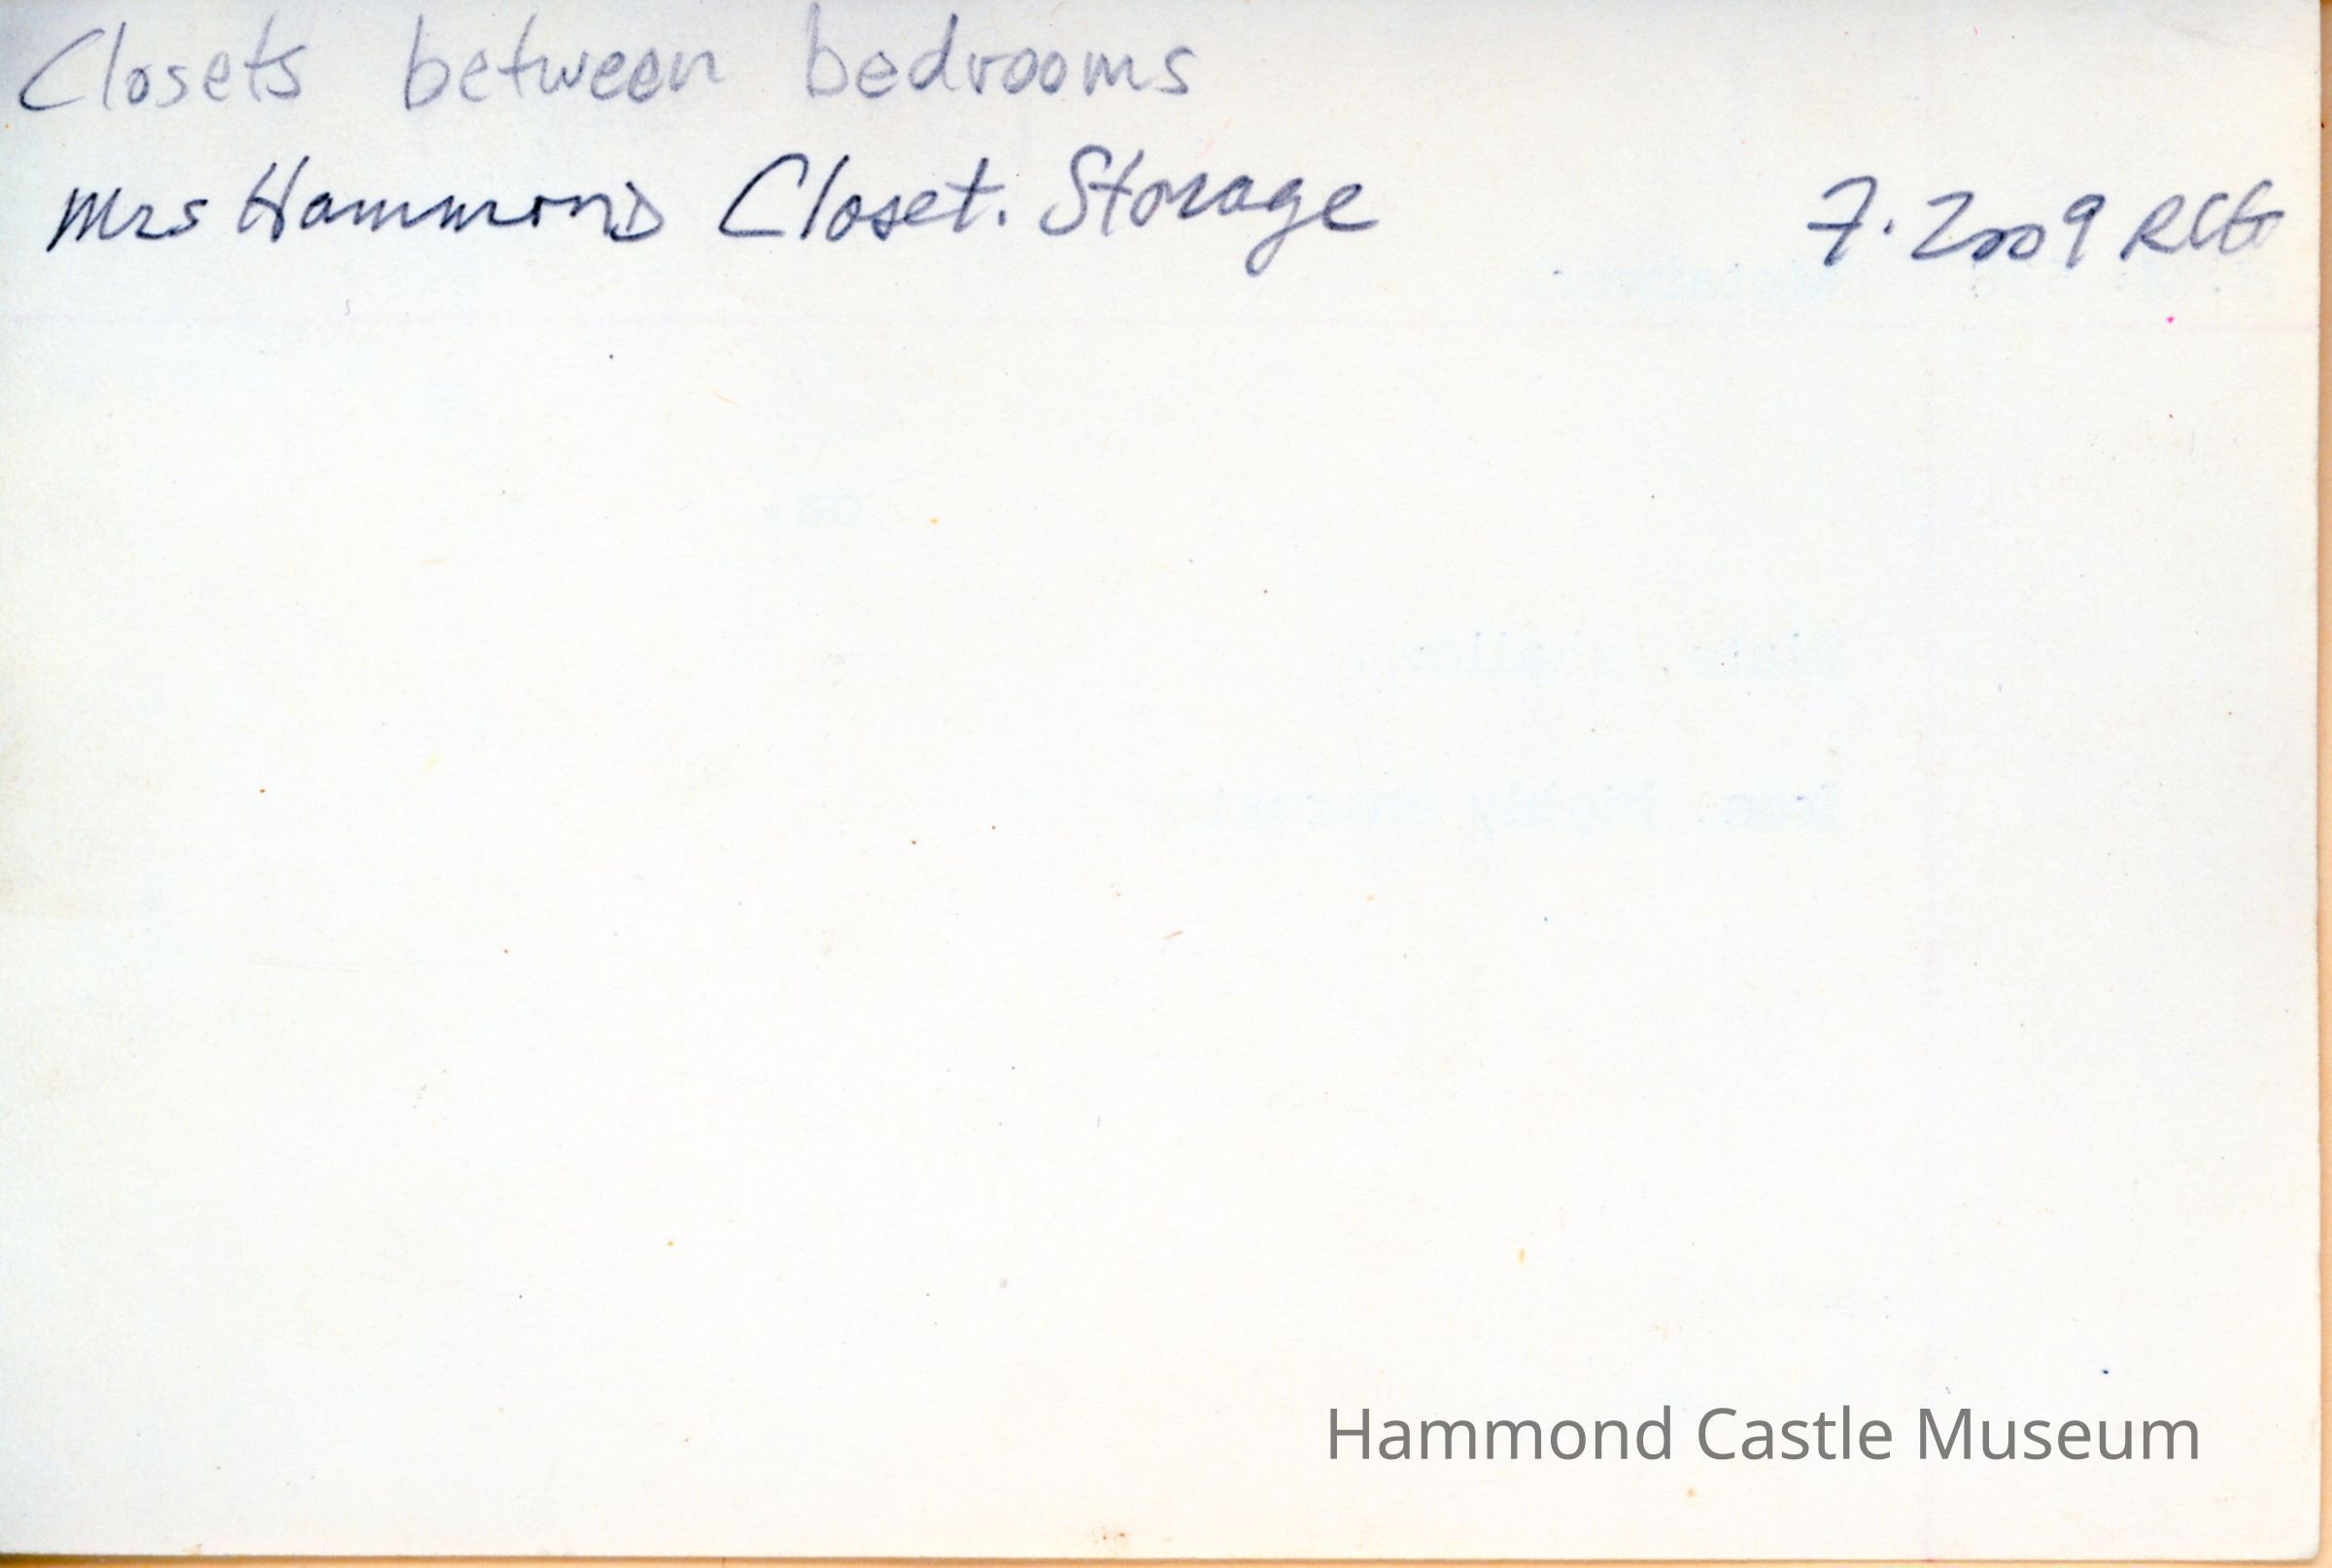 Closets between bedrooms
Mrs Hammond Closet. Storage 7.2009 RCG
Hammond Castle Museum